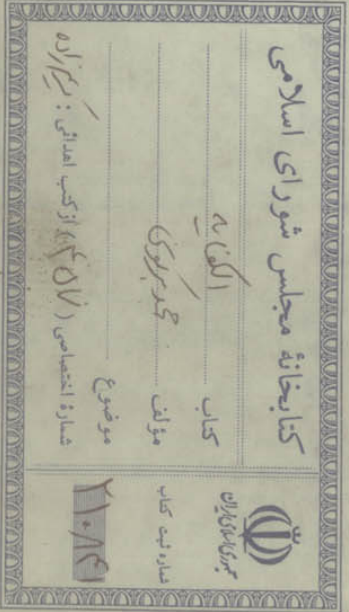 کتابخانهٔ مجلس شورای اسلامی
کتاب الکفایه
مؤلف محمد برکوی
موضوع
شمارهٔ اختصاصی (۴۵۷) از کتب اهدائی :
جمهوری اسلامی ایران
شماره ثبت کتاب
۲۱۰۸۴۱